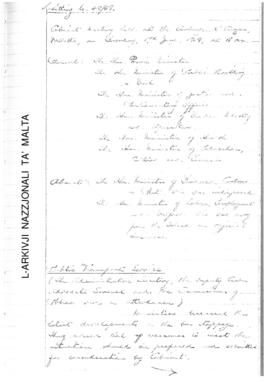 Sitting No. 49/68.
Cabinet Meeting held at the Auberge d'Aragon,
Valletta, on Monday, 17th June, 1968, at
Present: The Hon. Prime Minister
The Hon. Minister of Public Building
and Works
The Hon. Minister of Justice and
Parliamentary Affairs
The Hon. Minister of Trade, Industry
and Agriculture
The Hon. Minister of Health
The Hon. Minister of Education,
Culture and Tourism
Absent: The Hon. Minister of Finance, Customs
and Port who was indisposed
The Hon. Minister of Labour, Employment
and Welfare who was away
from the Island on official
business.
Public Transport Service
(The Administrative Secretary, the Deputy Crown
Advocate General and the Commissioner of
Police were in attendance)
Ministers discussed the
latest developments in the bus stoppage.
They agreed that a list of measures to meet the
situation should be prepared and submitted
for consideration by Cabinet.
L-ARKIVJI NAZZJONALI TA' MALTA